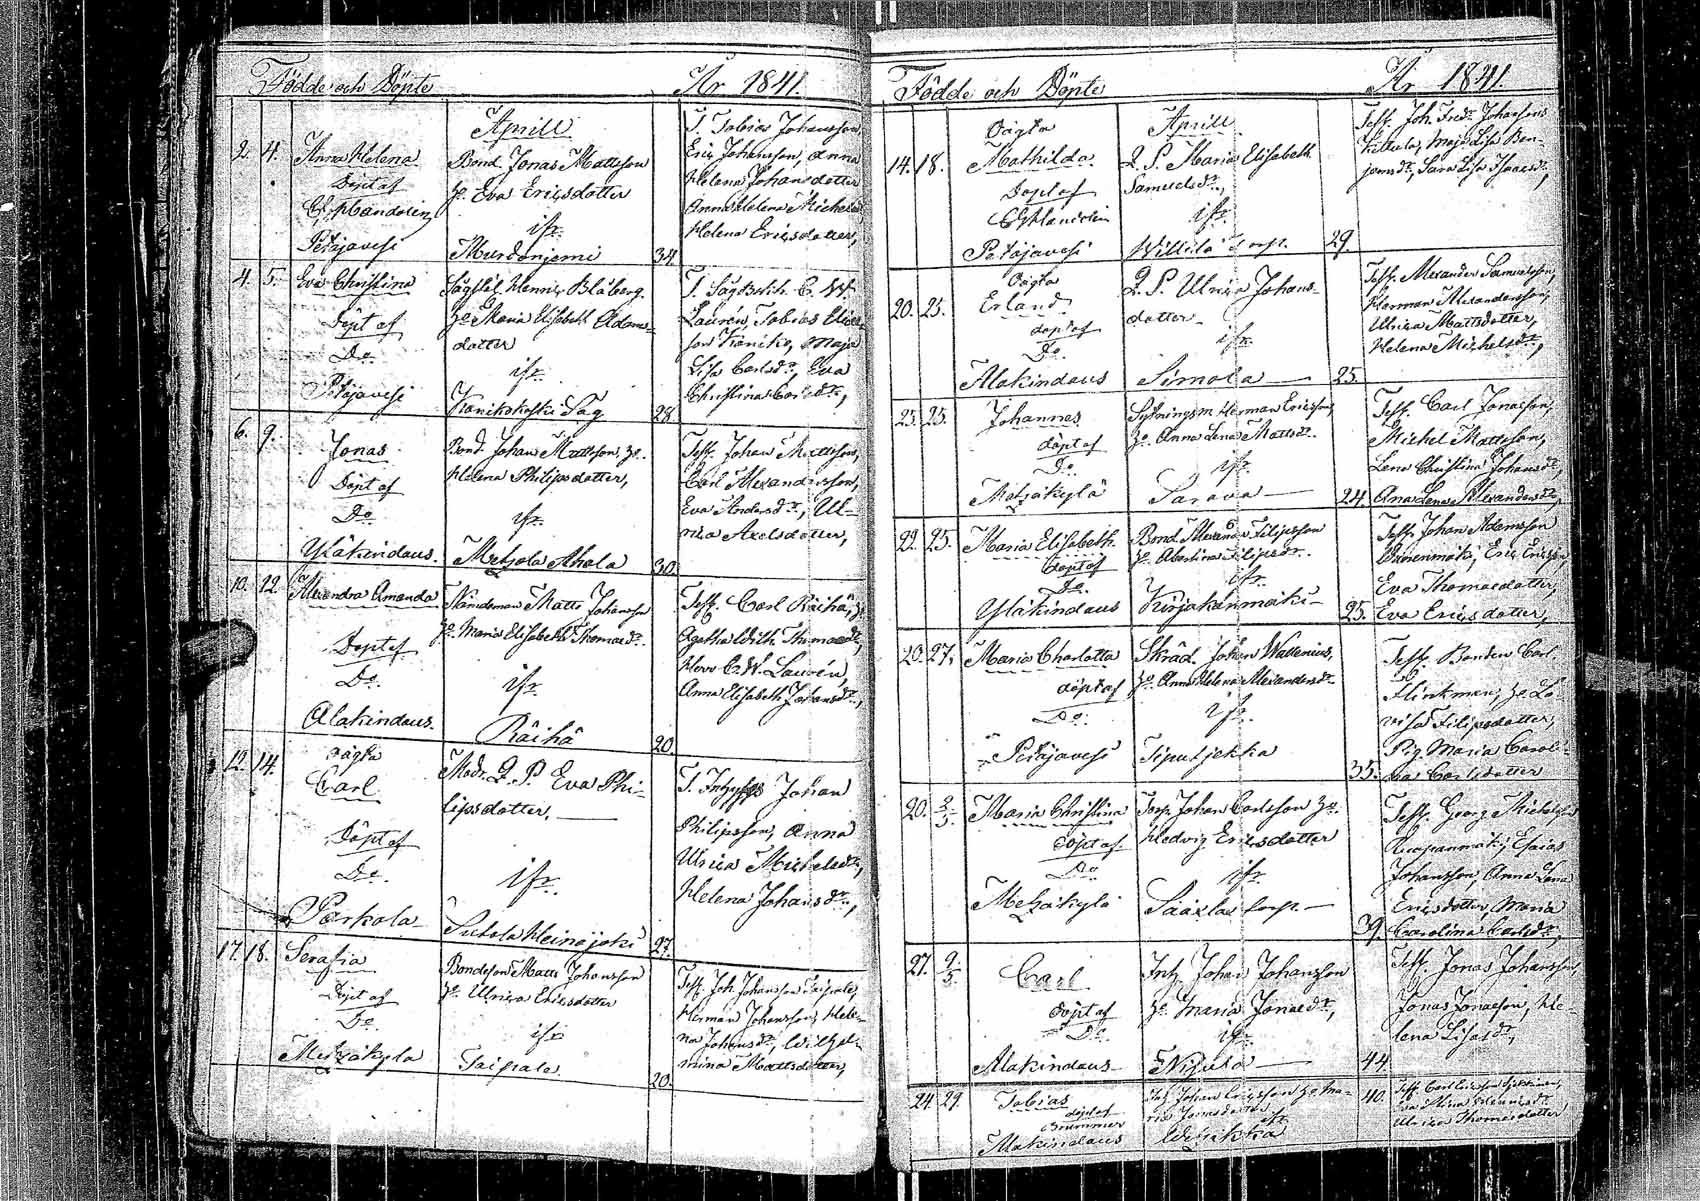 Födde och Döpte
År 1841.
Aprill
2. 4. Anna Helena
Döpt af
Petäjävesi
Bond. Jonas Mattsson
h. Eva Ericsdotter
ifr.
Mursdonjemi
34
T. Tobias Johansson,
Eric Johansson, Anna
Helena Johansdotter
Anna Helena Michelsd.
Helena Ericsdotter,
4. 5. Eva Christina
Döpt af
Do.
Petäjävesi
Henric Blåberg
h. Maria Elisabeth Adams-
dotter
ifr.
Kanikokoski Såg
28
T. C. W.
Laurén, Tobias
Maja
Lisa Carlsdr., Eva
Christina
6. 9. Jonas
Döpt af
Do.
Yläkindaus.
Bond. Johan Mattsson, h.
Helena Philipsdotter,
ifr.
Metzola Ahola
30
Test. Johan Mattsson,
Carl Alexandersson,
Eva Andersdr., Ul-
rica Axelsdotter,
10. 12. Alexandra Amanda
Döpt af
Do.
Alakindaus.
Nämdeman Matts Johansson
h. Maria Elisabeth Thomasdr.
ifr.
Räihä
20.
Test. Carl Räihä, h.
Agatha Wilh. Thomasdr.,
Herr C. W. Laurén,
Anna Elisabeth Johansdr.,
12. 14. Oägta
Carl
Döpt af
Do.
Parkola
Modr. Q. P. Eva Phi-
lipsdotter,
ifr.
Sutola Heinäjoki
27.
T. Johan
Philipsson, Anna
Ulrica Michelsdr.,
Helena Johansdr.,
17. 18. Serafia
Döpt af
Do.
Metzäkylä
Bondeson Matts Johansson
h. Ulrica Ericsdotter
ifr.
Taipale.
20.
Test. Joh. Johansson Taipale,
Herman Johansson, Hele-
na Johansdr., Wilhel-
mina Mattsdotter,
Födde och Döpte
År 1841.
Aprill
14. 18. Oägta
Mathilda
Döpt af
Petäjävesi
Q. P. Maria Elisabeth
Samuelsdr.,
ifr.
Wiltilä torp.
29.
Test. Joh. Fredr. Johansson
Maja Lisa Ben-
jamsdr., Sara Lisa Isacsdr.,
20. 25. Oägta
Erland
döpt af
Do.
Alakindaus
Q. P. Ulrica Johans-
dotter
ifr.
Simola
25.
Test. Alexander Samuelsson,
Herman Alexandersson,
Ulrica Mattsdotter,
Helena Michelsdr.,
23. 25. Johannes
döpt af
Do.
Metzäkylä
Sytningsm. Herman Ericsson,
h. Anna Lena Mattsdr.
ifr.
Sarava
24.
Test. Carl Jonasson,
Michel Mattsson,
Lena Christina Johansdr.,
Ana Lena Alexandersdr.,
22. 25. Maria Elisabeth
döpt af
Do.
Yläkindaus
Bond. Alexander Filipsson
h. Albertina Filipsdr.
ifr.
Kirjakanmäki
25.
Test. Johan Adamsson
Eric Ericsson,
Eva Thomasdotter,
Eva Ericsdotter,
20. 27. Maria Charlotta
döpt af
Do.
Petäjävesi
Skräd. Johan Wallenius,
h. Anna Helena Alexandersdr.
ifr.
Tiputjekka
35.
Test. Bonden Carl
Flinkman, h. Lo-
visa Filipsdotter,
Pig. Maria Caroli-
na Carlsdotter
20. 2/5. Maria Christina
döpt af
Do.
Metzäkylä
Torp. Johan Carlsson h.
Hedvig Ericsdotter
ifr.
Sääxlax torp.
39.
Test. Georg Michelsson
Esaias
Johansson, Anna Lena
Ericsdotter, Maria
Carolina Carlsdr.,
27. 9/5. Carl
döpt af
Do.
Alakindaus
Inh. Johan Johansson
h. Maria Jonasdr.,
ifr.
Nisula
44.
Test. Jonas Johansson,
Jonas Jonasson, He-
lena Lisasdr.,
24. 29. Tobias
döpt af
Brummer
Alakindaus
Inh. Johan Ericsson h. Ma-
ria Jonasdotter
ifr.
40.
Test. Carl Ericsson
Eva Stina
Ulrica Thomasdotter